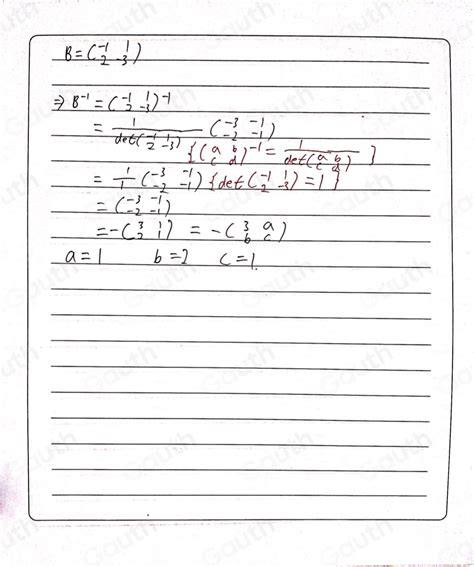 B = (-1 1
2 -3)
⇒ B⁻¹ = (-1 1
2 -3)⁻¹
= 1/det(-1 1
2 -3) (-3 -1
-2 -1)
{(a b
c d)⁻¹ = 1/det(a b
c d) }
= 1/1 (-3 -1
-2 -1) {det(-1 1
-2 -3) = 1}
= (-3 -1
-2 -1)
= -(3 1
2 1) = -(3 a
b c)
a = 1 b = 2 c = 1.
Gauth